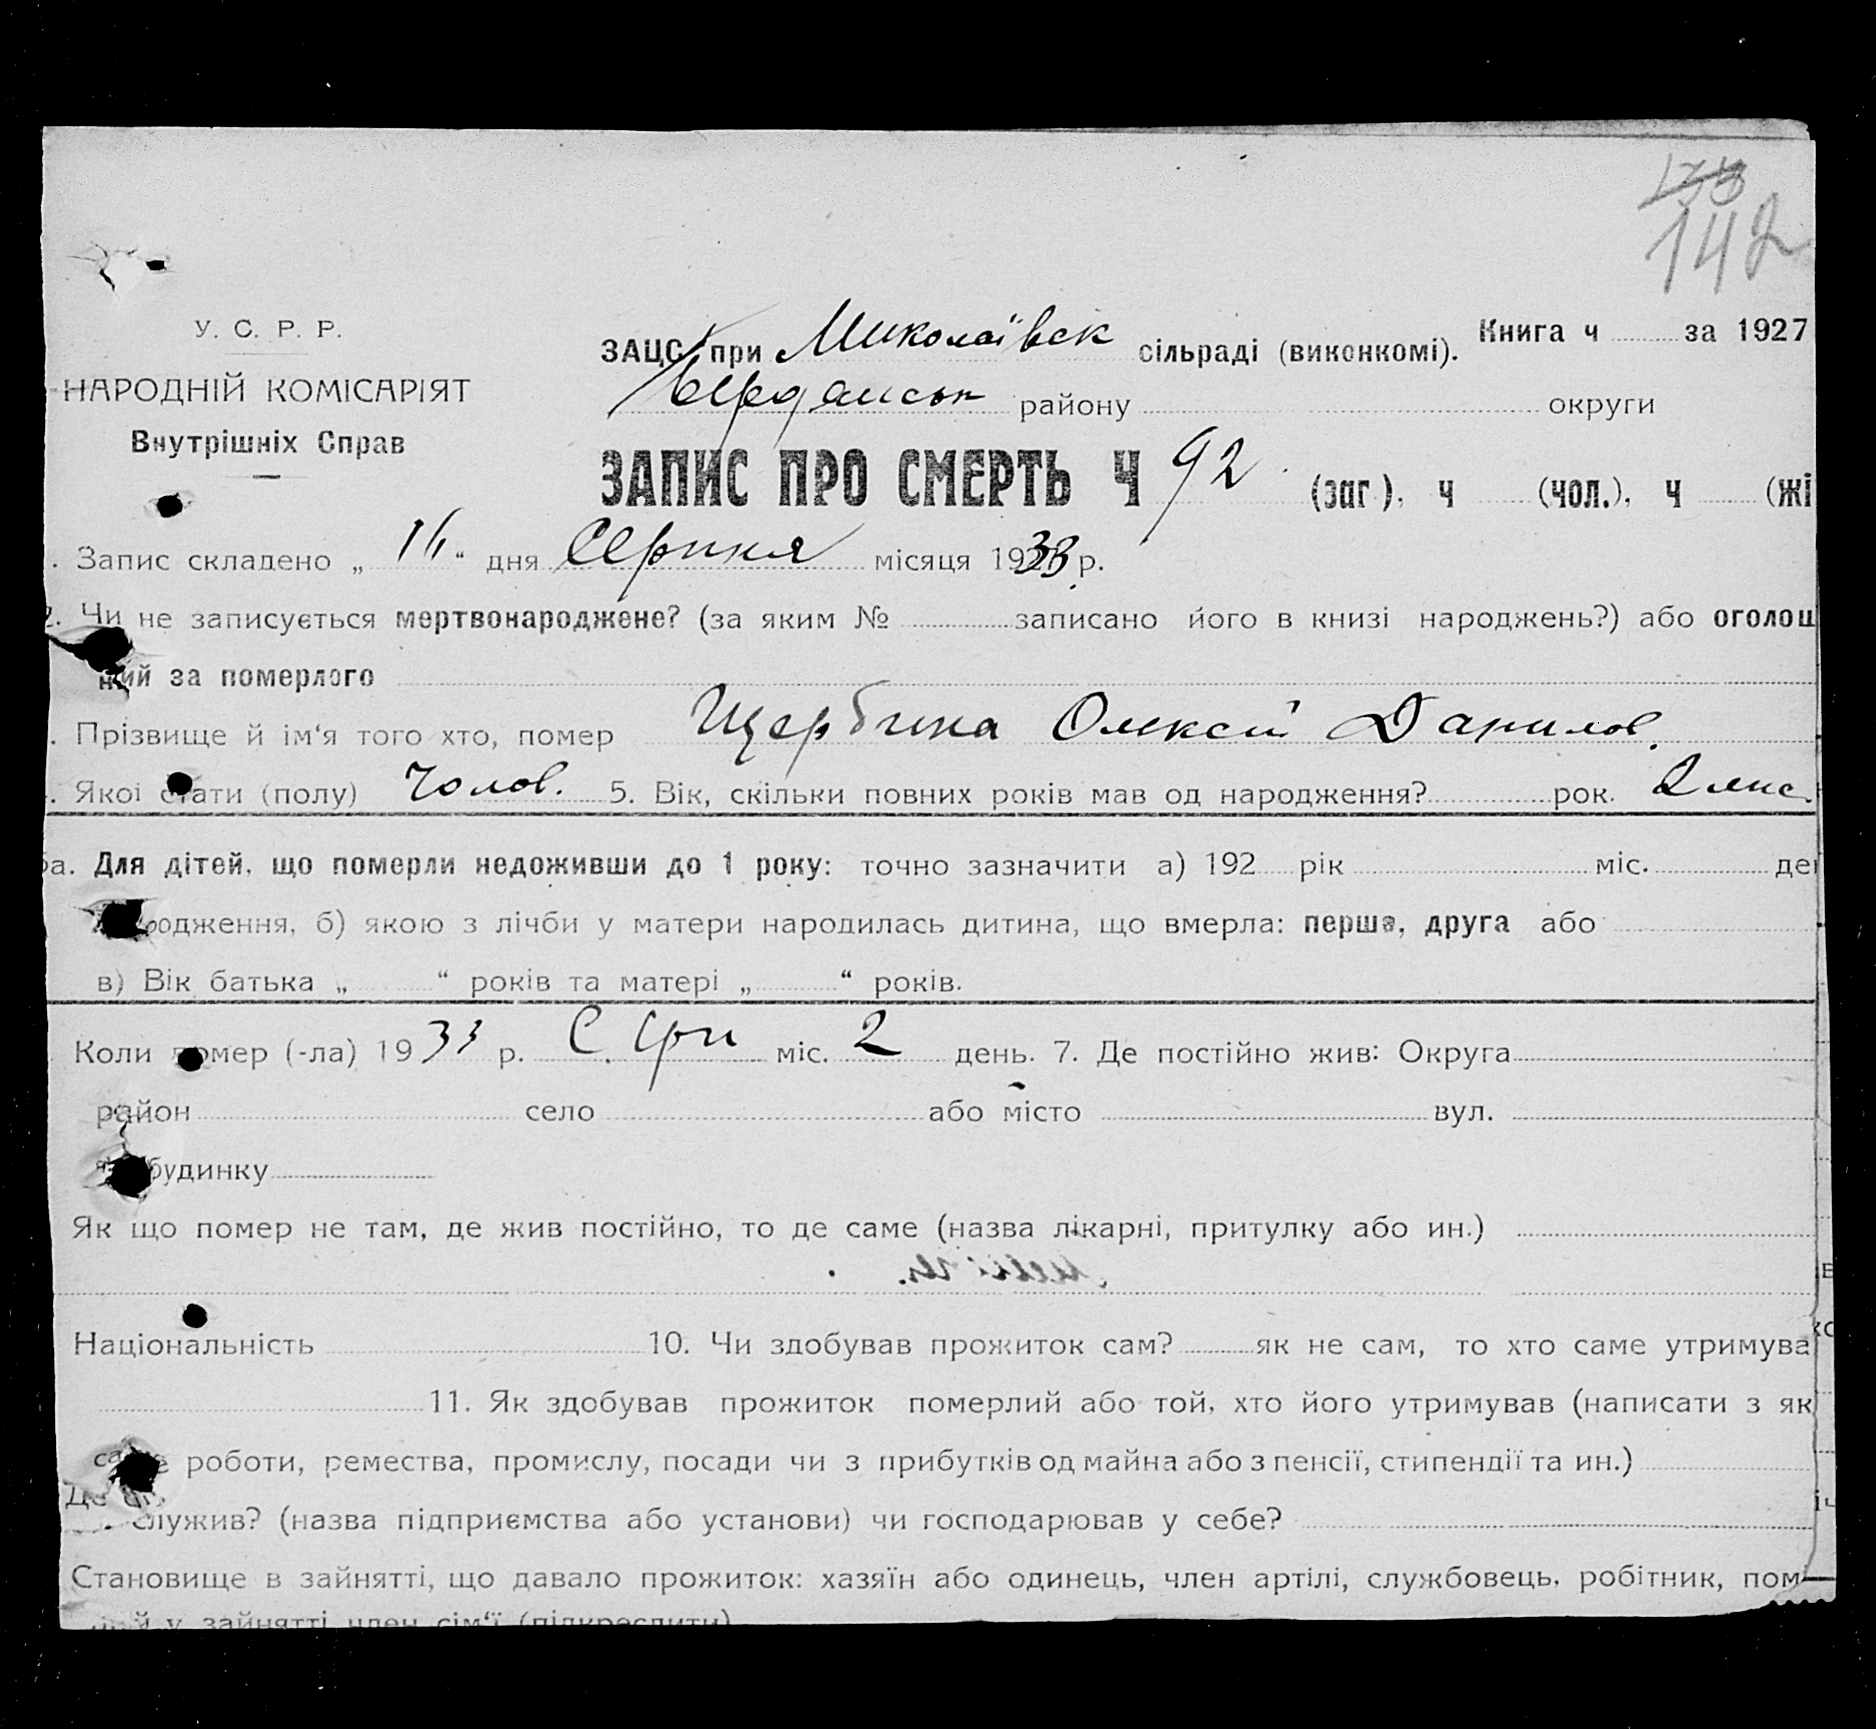 142
У. С. Р. Р.
НАРОДНІЙ КОМІСАРІЯТ
Внутрішніх Справ
ЗАЦС при Миколаївск сільраді (виконкомі). Книга ч за 1927
Бердянськ району округи
ЗАПИС ПРО СМЕРТЬ Ч 92 (заг.), ч (чол.), ч (жі
Запис складено „ 16 “ дня Серпня місяця 1933 р.
2. Чи не записується мертвонароджене? (за яким № записано його в книзі народжень?) або оголош
ний за померлого
Прізвище й ім‘я того хто, помер Щербина Олексій Данилов.
Якої стати (полу) Чолов. 5. Вік, скільки повних років мав од народження? рок. 2 міс.
5а. Для дітей, що померли недоживши до 1 року: точно зазначити а) 192 рік міс. ден
народження, б) якою з лічби у матери народилась дитина, що вмерла: перша, друга або
в) Вік батька „ “ років та матері „ “ років.
Коли помер (-ла) 1933 р. Серп міс. 2 день. 7. Де постійно жив: Округа
район село або місто вул.
будинку
Як що помер не там, де жив постійно, то де саме (назва лікарні, притулку або ин.)
Національність 10. Чи здобував прожиток сам? як не сам, то хто саме утримува
11. Як здобував прожиток померлий або той, хто його утримував (написати з як
саме роботи, ремества, промислу, посади чи з прибутків од майна або з пенсії, стипендії та ин.)
служив? (назва підприємства або установи) чи господарював у себе?
Становище в зайнятті, що давало прожиток: хазяїн або одинець, член артілі, службовець, робітник, помі
й у зайнятті член сім‘ї (підкреслити)